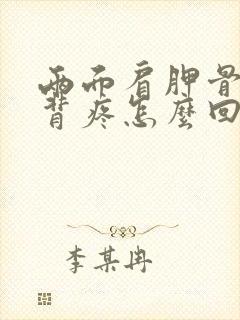 兩而肩胛骨
背疼怎麼回
李某冉